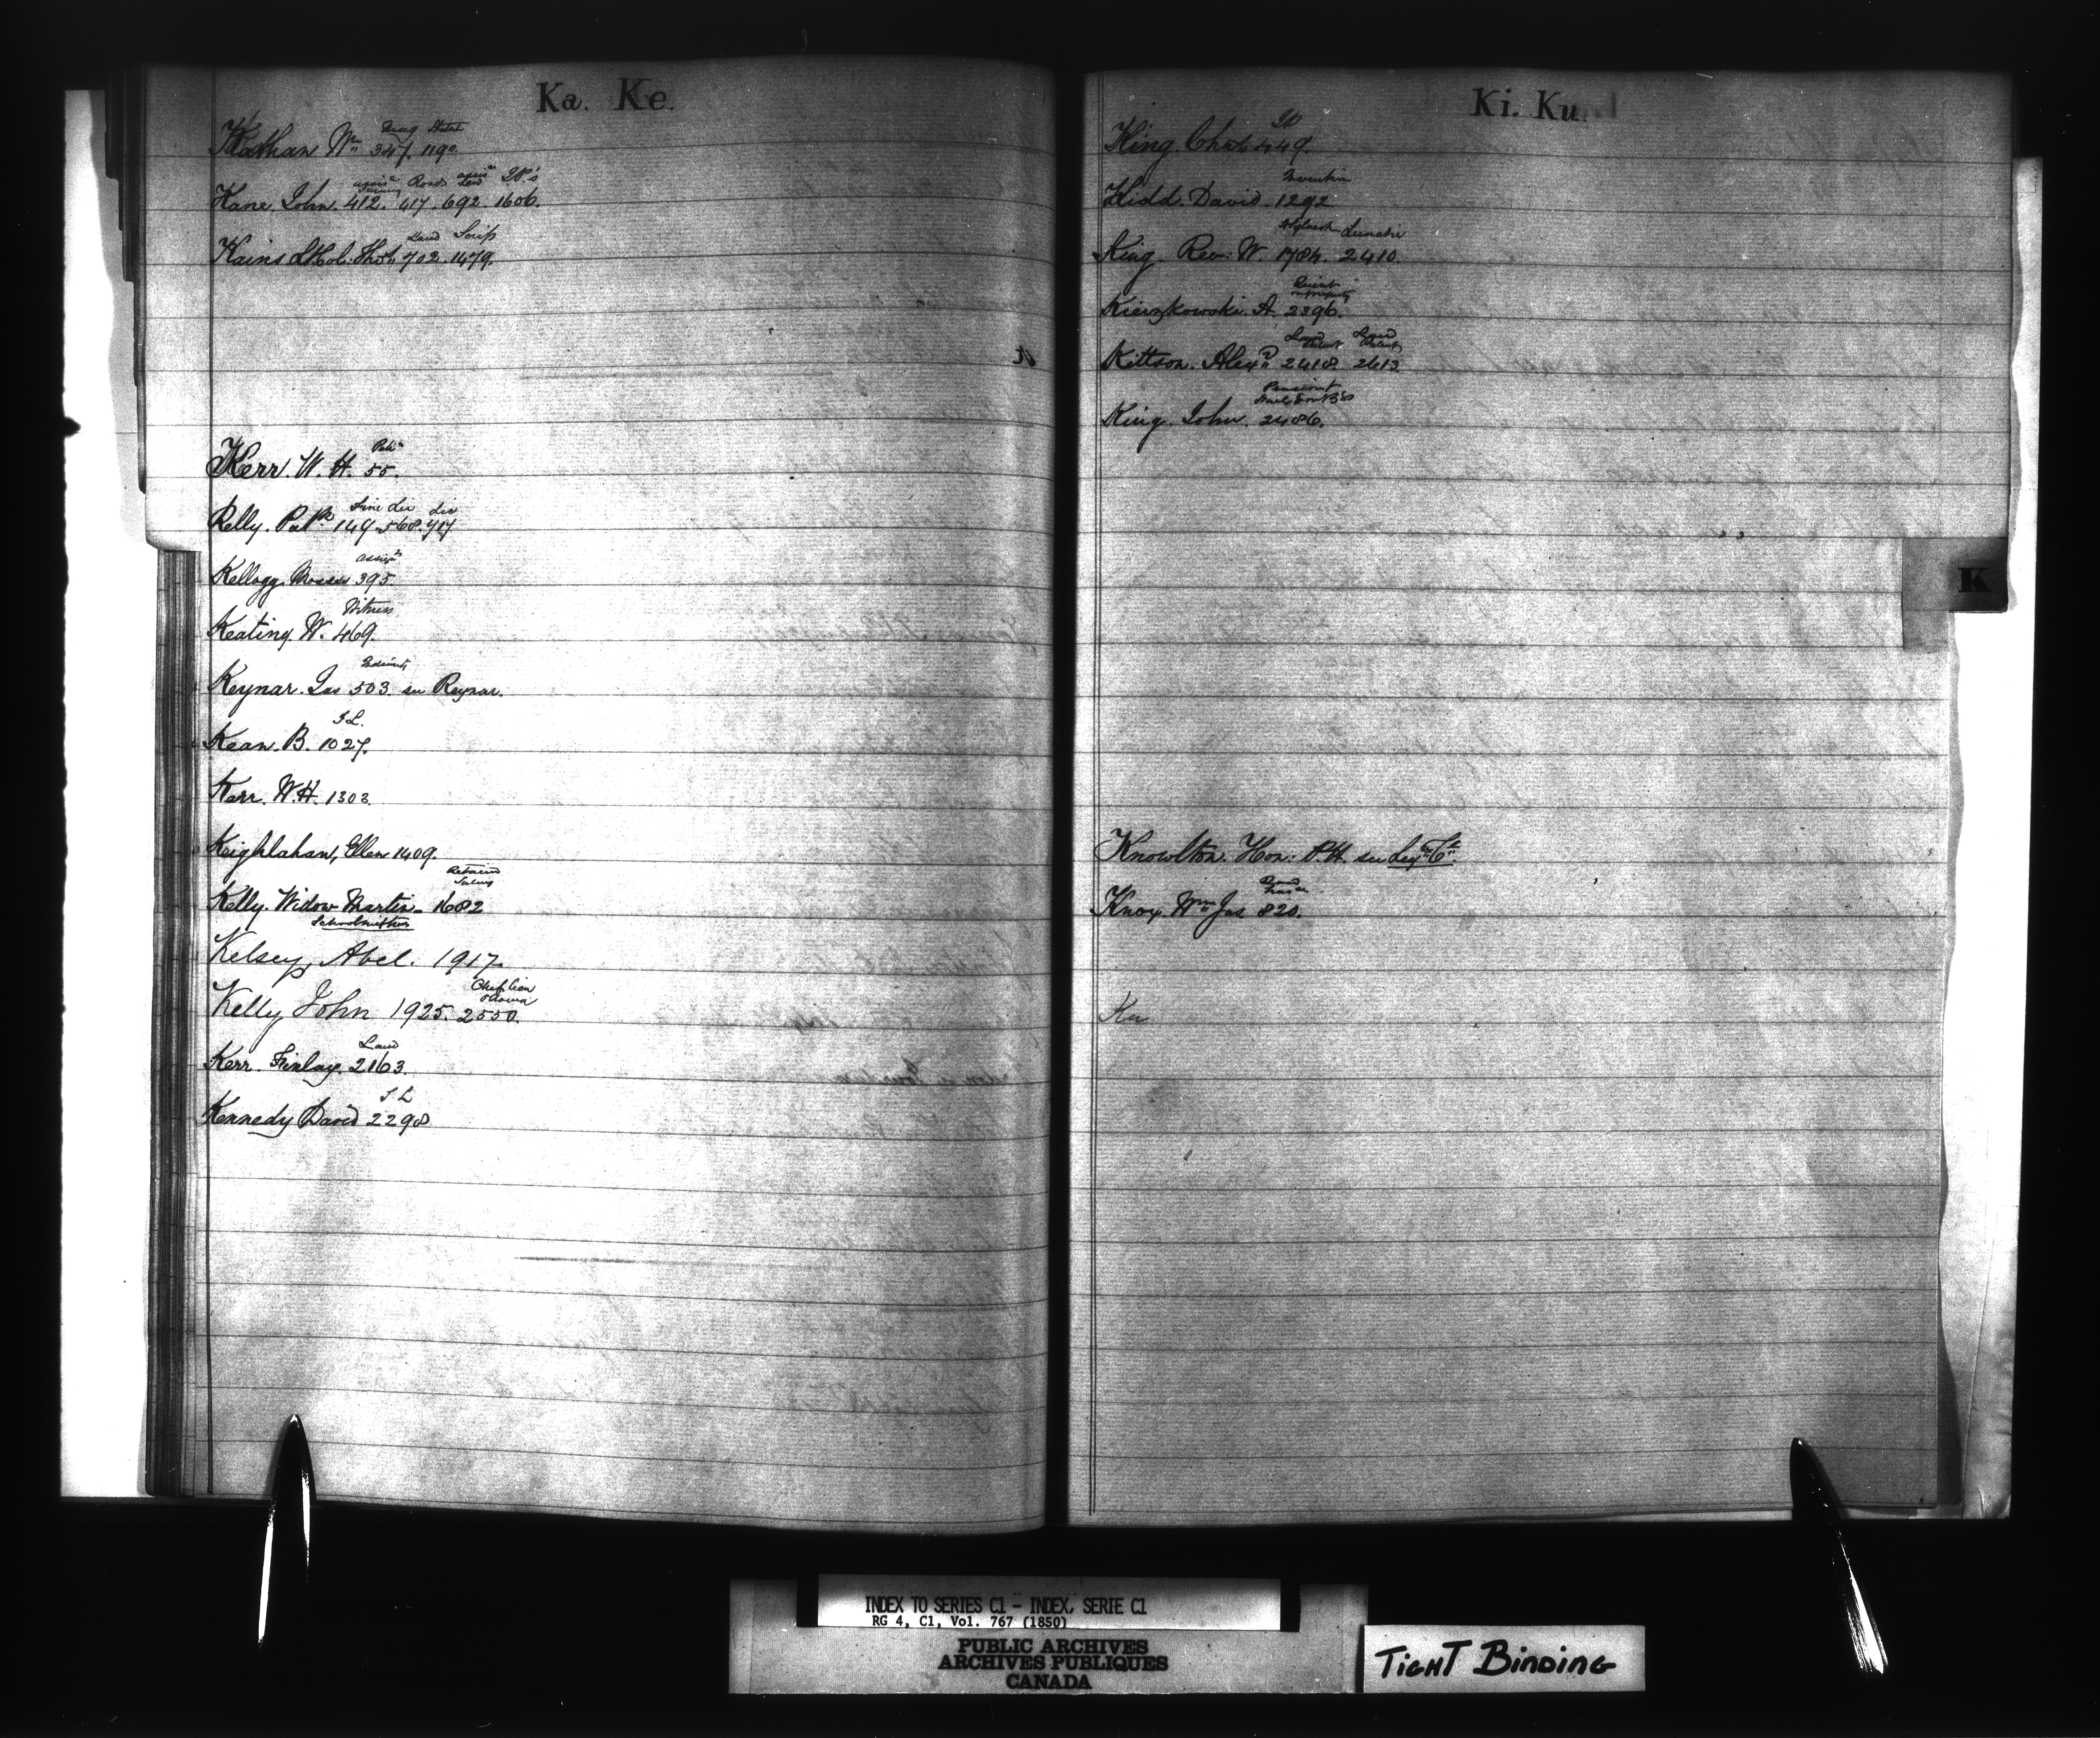 Ka. Ke.
Kathan Wm 347. 1190.
Road
Kane. John. 412. 417. 692. 1606.
Land Scrip
Kains Thos 702. 1479.
Kerr. W. H. 55.
Fine Lic Lic
Kelly. Patk 149. 568. 717
Assist
Kellogg. Moses 395
Witness
Keating. W. 469.
Indemnity
Keynar. Jas 503 see Reynar.
Kean. B. 1027.
Kerr. W. H. 1303
Keighlahan, Ellen 1409.
Kelly. Widow Martin 1682
Schoolmistress
Kelsey, Abel. 1917.
Kelly John 1925. 2550.
Land
Kerr. Finlay. 2163.
Kennedy David 2298
Ki. Ku.
King. Chas 449.
Kidd. David. 1292.
Lunatic
King. Rev: W. 1784. 2410.
Kierzkowski. A. 2396.
Land Land
Kittson. Alexr 2418. 2613
King. John. 2486.
K
Knowlton. Hon: P. H. see Leg: C:
Knox. Wm Jas 820.
Ku
INDEX TO SERIES C1 - INDEX, SERIE C1
RG 4, C1, Vol. 767 (1850)
PUBLIC ARCHIVES
ARCHIVES PUBLIQUES
CANADA
TIGHT BINDING